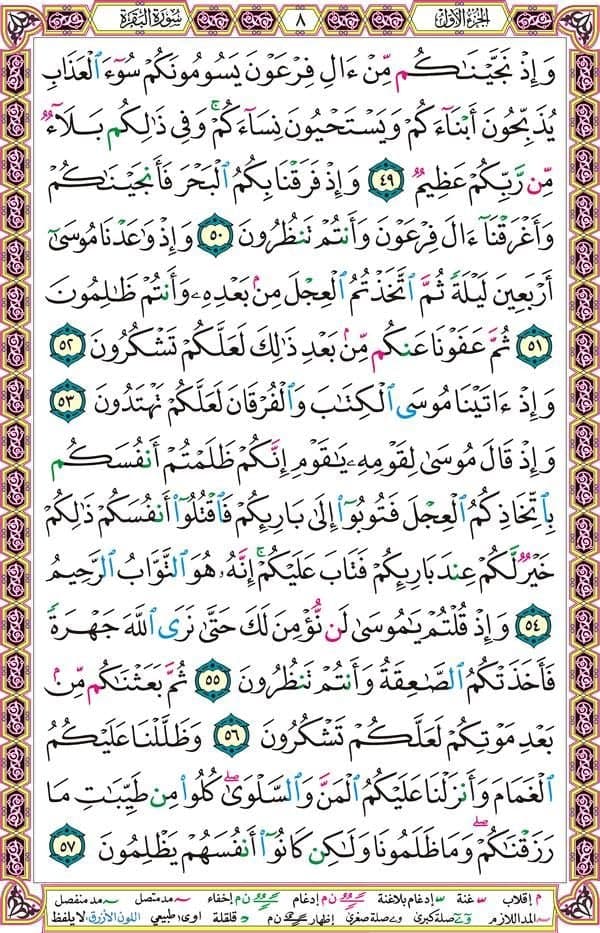 الجزء الأول ٨ سورة البقرة
وَإِذْ نَجَّيْنَاكُم مِّنْ ءَالِ فِرْعَوْنَ يَسُومُونَكُمْ سُوٓءَ ٱلْعَذَابِ
يُذَبِّحُونَ أَبْنَآءَكُمْ وَيَسْتَحْيُونَ نِسَآءَكُمْ ۚ وَفِى ذَٰلِكُم بَلَآءٌ
مِّن رَّبِّكُمْ عَظِيمٌ ٤٩ وَإِذْ فَرَقْنَا بِكُمُ ٱلْبَحْرَ فَأَنجَيْنَاكُمْ
وَأَغْرَقْنَآ ءَالَ فِرْعَوْنَ وَأَنتُمْ تَنظُرُونَ ٥٠ وَإِذْ وَٰعَدْنَا مُوسَىٰٓ
أَرْبَعِينَ لَيْلَةً ثُمَّ ٱتَّخَذْتُمُ ٱلْعِجْلَ مِنۢ بَعْدِهِۦ وَأَنتُمْ ظَٰلِمُونَ
٥١ ثُمَّ عَفَوْنَا عَنكُم مِّنۢ بَعْدِ ذَٰلِكَ لَعَلَّكُمْ تَشْكُرُونَ ٥٢
وَإِذْ ءَاتَيْنَا مُوسَى ٱلْكِتَٰبَ وَٱلْفُرْقَانَ لَعَلَّكُمْ تَهْتَدُونَ ٥٣
وَإِذْ قَالَ مُوسَىٰ لِقَوْمِهِۦ يَٰقَوْمِ إِنَّكُمْ ظَلَمْتُمْ أَنفُسَكُم
بِٱتِّخَاذِكُمُ ٱلْعِجْلَ فَتُوبُوٓا۟ إِلَىٰ بَارِئِكُمْ فَٱقْتُلُوٓا۟ أَنفُسَكُمْ ذَٰلِكُمْ
خَيْرٌ لَّكُمْ عِندَ بَارِئِكُمْ فَتَابَ عَلَيْكُمْ ۚ إِنَّهُۥ هُوَ ٱلتَّوَّابُ ٱلرَّحِيمُ
٥٤ وَإِذْ قُلْتُمْ يَٰمُوسَىٰ لَن نُّؤْمِنَ لَكَ حَتَّىٰ نَرَى ٱللَّهَ جَهْرَةً
فَأَخَذَتْكُمُ ٱلصَّٰعِقَةُ وَأَنتُمْ تَنظُرُونَ ٥٥ ثُمَّ بَعَثْنَٰكُم مِّنۢ
بَعْدِ مَوْتِكُمْ لَعَلَّكُمْ تَشْكُرُونَ ٥٦ وَظَلَّلْنَا عَلَيْكُمُ
ٱلْغَمَامَ وَأَنزَلْنَا عَلَيْكُمُ ٱلْمَنَّ وَٱلسَّلْوَىٰ ۖ كُلُوا۟ مِن طَيِّبَٰتِ مَا
رَزَقْنَٰكُمْ ۖ وَمَا ظَلَمُونَا وَلَٰكِن كَانُوٓا۟ أَنفُسَهُمْ يَظْلِمُونَ ٥٧
م إقلاب غنة إدغام بلاغنة ن م إدغام ن م إخفاء مد متصل مد منفصل
المد اللازم صلة كبرى صلة صغرى إظهار ن م قلقلة اوى: طبيعي اللون الأزرق: لا يلفظ